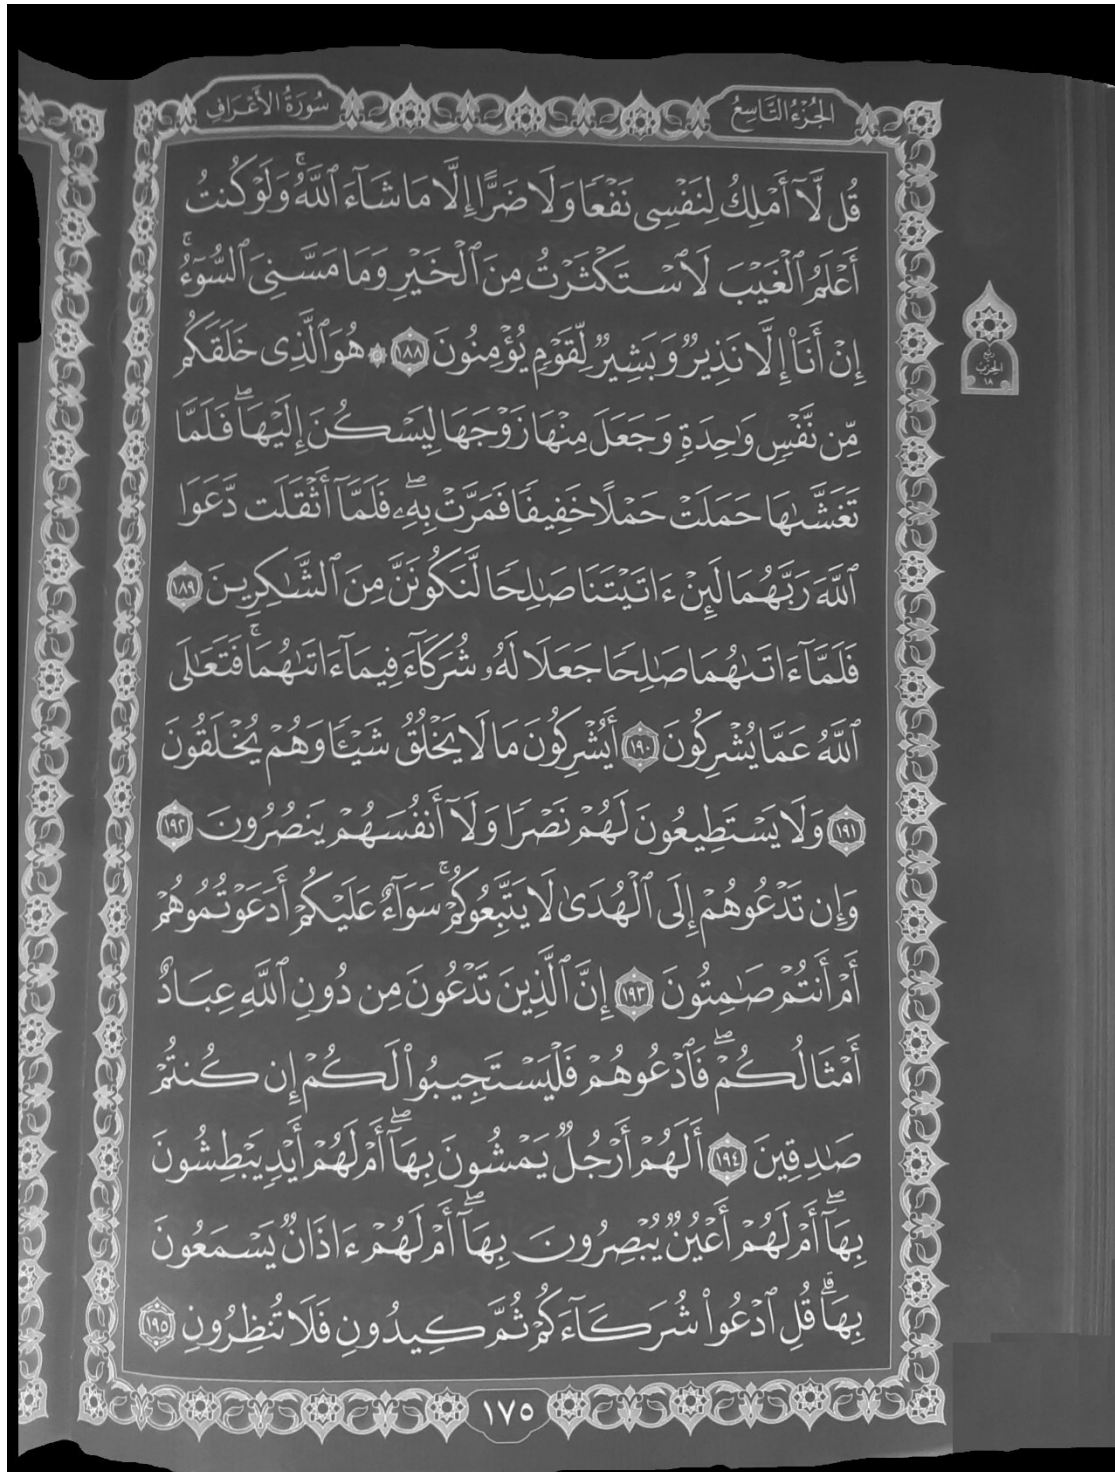 الجزء التاسع
سورة الأعراف
قُل لَّآ أَمْلِكُ لِنَفْسِى نَفْعًا وَلَا ضَرًّا إِلَّا مَا شَآءَ ٱللَّهُۚ وَلَوْ كُنتُ
أَعْلَمُ ٱلْغَيْبَ لَٱسْتَكْثَرْتُ مِنَ ٱلْخَيْرِ وَمَا مَسَّنِىَ ٱلسُّوٓءُۚ
إِنْ أَنَا۠ إِلَّا نَذِيرٌ وَبَشِيرٌ لِّقَوْمٍ يُؤْمِنُونَ ١٨٨ ۞ هُوَ ٱلَّذِى خَلَقَكُم
مِّن نَّفْسٍ وَٰحِدَةٍ وَجَعَلَ مِنْهَا زَوْجَهَا لِيَسْكُنَ إِلَيْهَاۖ فَلَمَّا
تَغَشَّىٰهَا حَمَلَتْ حَمْلًا خَفِيفًا فَمَرَّتْ بِهِۦۖ فَلَمَّآ أَثْقَلَت دَّعَوَا
ٱللَّهَ رَبَّهُمَا لَئِنْ ءَاتَيْتَنَا صَٰلِحًا لَّنَكُونَنَّ مِنَ ٱلشَّٰكِرِينَ ١٨٩
فَلَمَّآ ءَاتَىٰهُمَا صَٰلِحًا جَعَلَا لَهُۥ شُرَكَآءَ فِيمَآ ءَاتَىٰهُمَاۚ فَتَعَٰلَى
ٱللَّهُ عَمَّا يُشْرِكُونَ ١٩٠ أَيُشْرِكُونَ مَا لَا يَخْلُقُ شَيْـًٔا وَهُمْ يُخْلَقُونَ
١٩١ وَلَا يَسْتَطِيعُونَ لَهُمْ نَصْرًا وَلَآ أَنفُسَهُمْ يَنصُرُونَ ١٩٢
وَإِن تَدْعُوهُمْ إِلَى ٱلْهُدَىٰ لَا يَتَّبِعُوكُمْۚ سَوَآءٌ عَلَيْكُمْ أَدَعَوْتُمُوهُمْ
أَمْ أَنتُمْ صَٰمِتُونَ ١٩٣ إِنَّ ٱلَّذِينَ تَدْعُونَ مِن دُونِ ٱللَّهِ عِبَادٌ
أَمْثَالُكُمْۖ فَٱدْعُوهُمْ فَلْيَسْتَجِيبُوا۟ لَكُمْ إِن كُنتُمْ
صَٰدِقِينَ ١٩٤ أَلَهُمْ أَرْجُلٌ يَمْشُونَ بِهَآۖ أَمْ لَهُمْ أَيْدٍ يَبْطِشُونَ
بِهَآۖ أَمْ لَهُمْ أَعْيُنٌ يُبْصِرُونَ بِهَآۖ أَمْ لَهُمْ ءَاذَانٌ يَسْمَعُونَ
بِهَاۗ قُلِ ٱدْعُوا۟ شُرَكَآءَكُمْ ثُمَّ كِيدُونِ فَلَا تُنظِرُونِ ١٩٥
ربع
الحزب
١٨
١٧٥